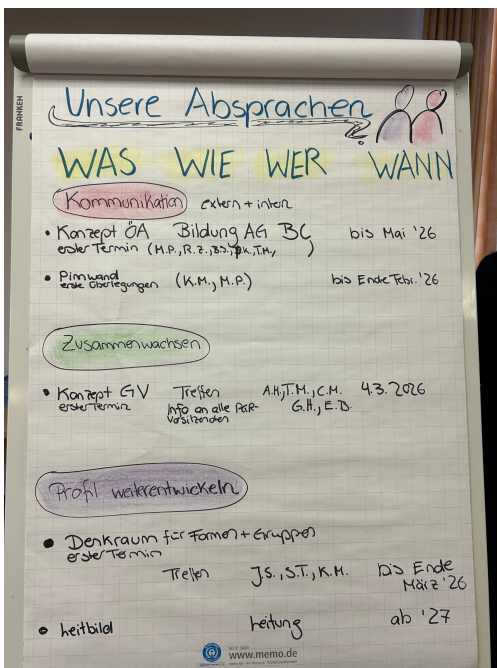 FRANKEN
Unsere Absprachen
WAS WIE WER WANN
Kommunikation extern + intern
• Konzept ÖA Bildung AG BC bis Mai '26
erster Termin (M.P., R.Z., B.J., T.M., )
• Pinnwand (K.M., M.P.) bis Ende Febr. '26
erste Überlegungen
Zusammenwachsen
• Konzept GV Treffen A.H., T.M., C.M. 4.3.2026
erster Termin Info an alle PGR- G.H., E.D.
Vorsitzenden
Profil weiterentwickeln
• Denkraum für Formen + Gruppen
erster Termin
Treffen J.S., S.T., K.M. bis Ende
März '26
• Leitbild Leitung ab '27
www.memo.de